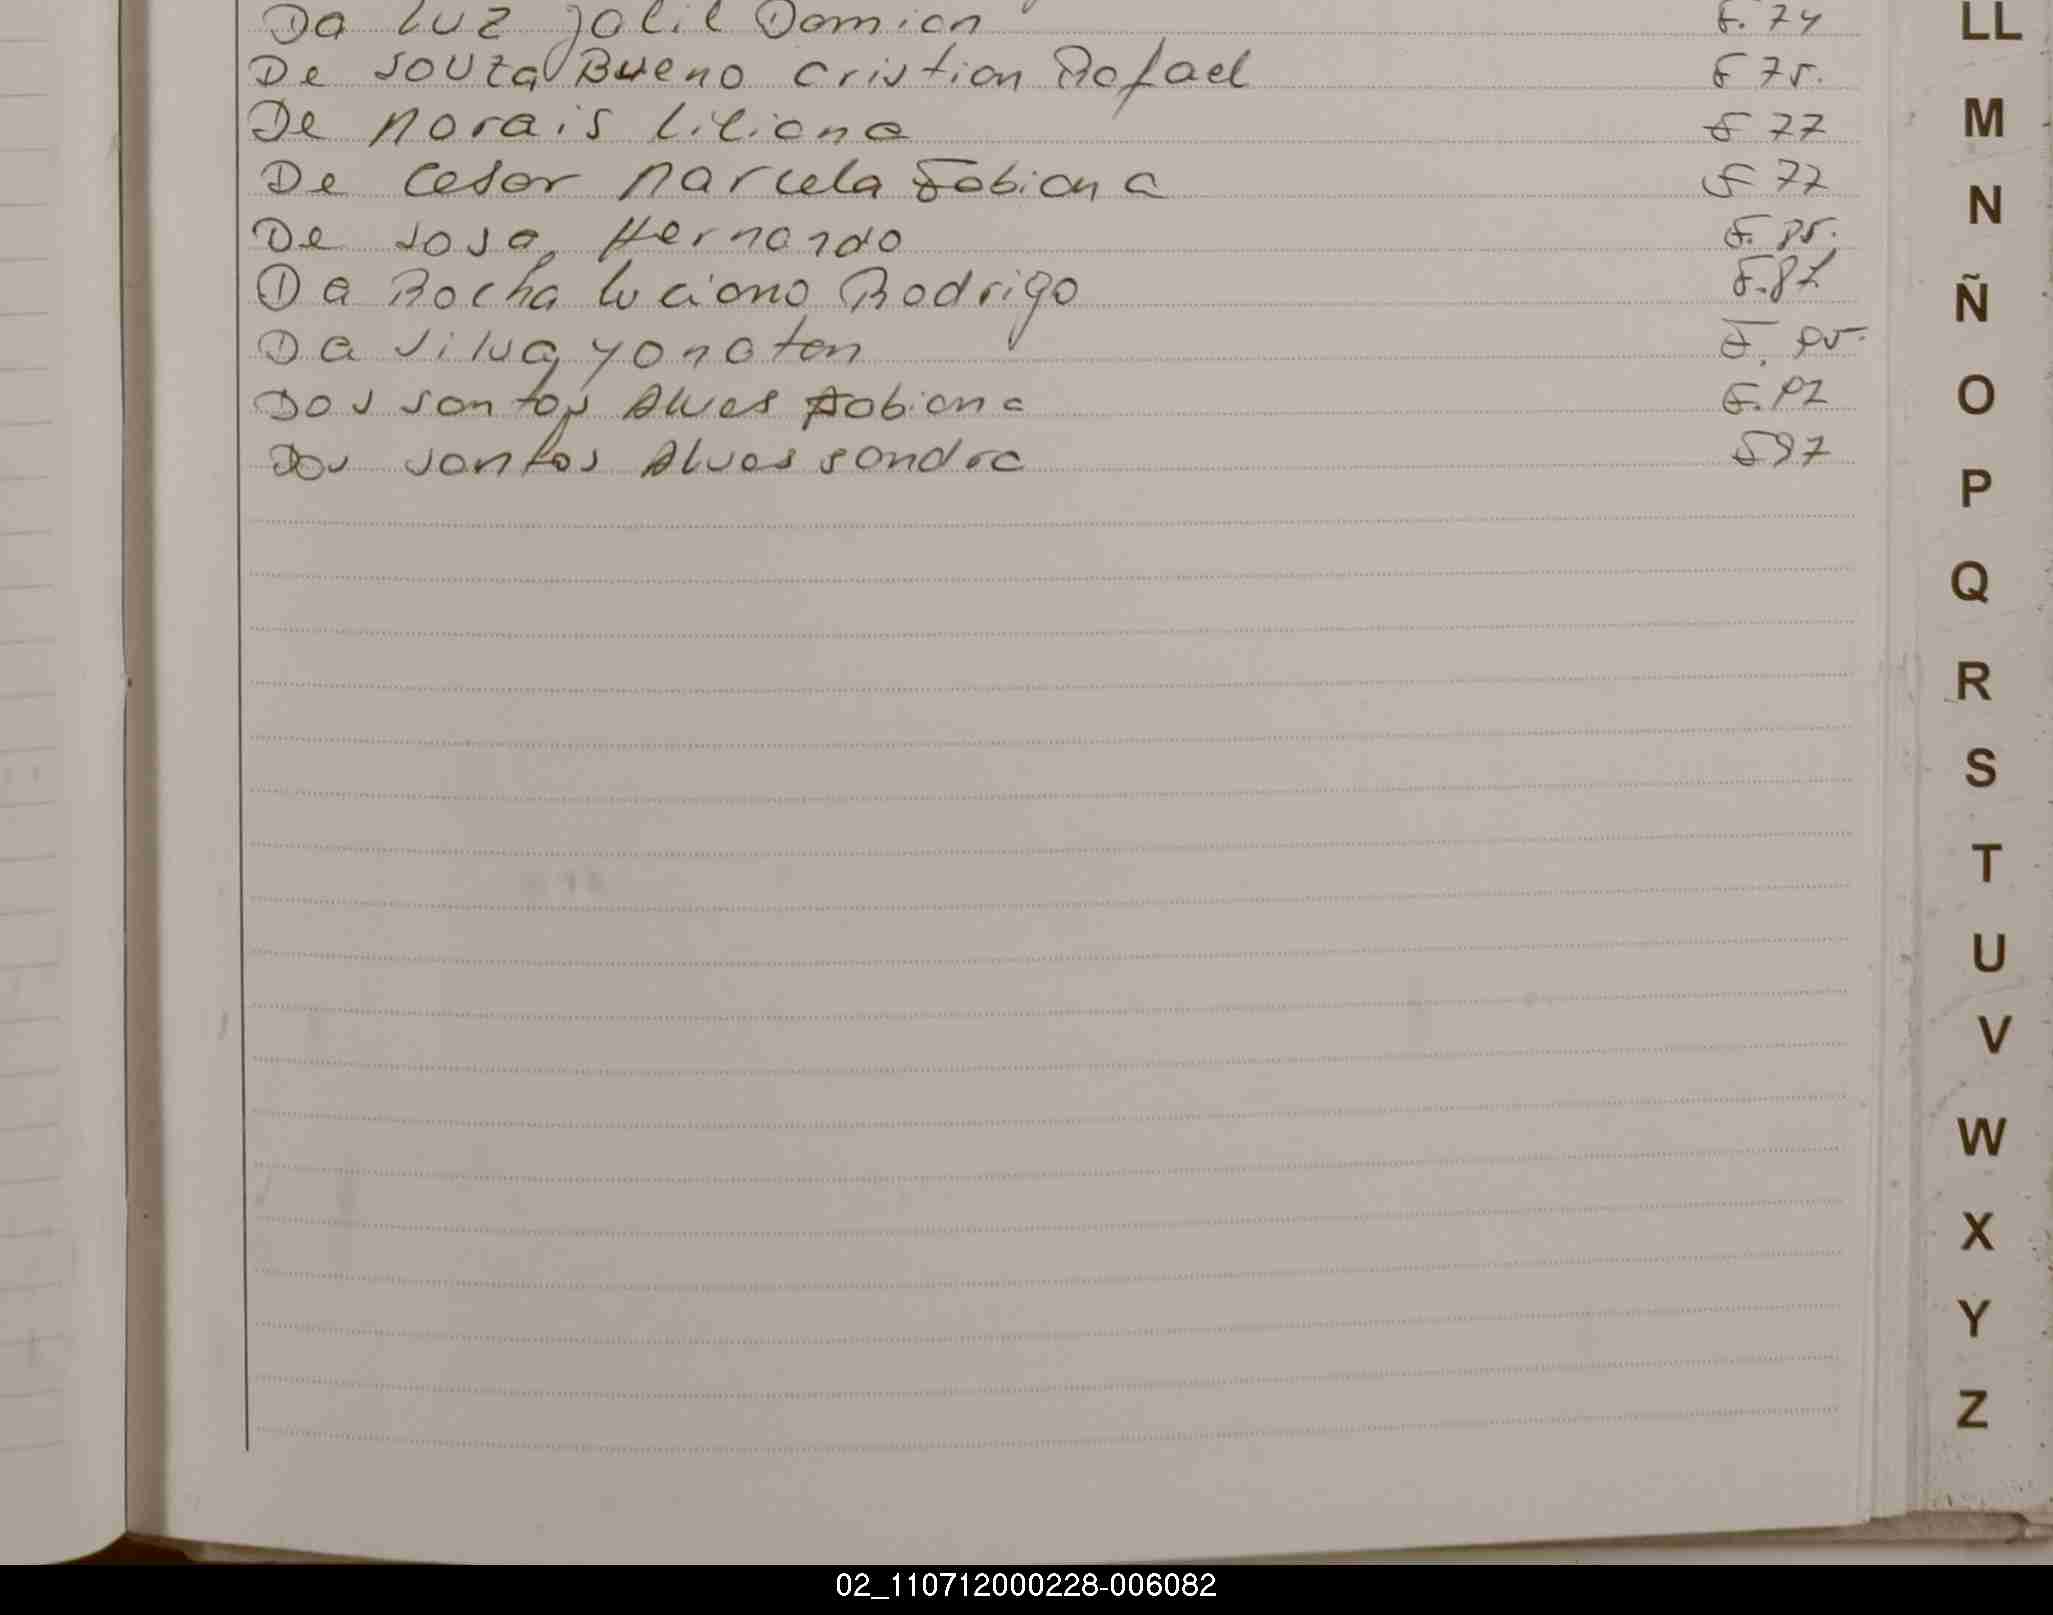 Da Luz Jalil Damian F. 74
De Souza Bueno Cristian Rafael F 75.
De Morais Liliana F 77
De Cesar Marcela Fabiana F 77
De Sosa, Hernando F. 85.
Da Rocha Luciano Rodrigo F.87
Da Silva, Yonatan F. 95.
Dos Santos Alves Fabiana F.97
Dos Santos Alves Sandra F97
LL
M
N
Ñ
O
P
Q
R
S
T
U
V
W
X
Y
Z
02_110712000228-006082